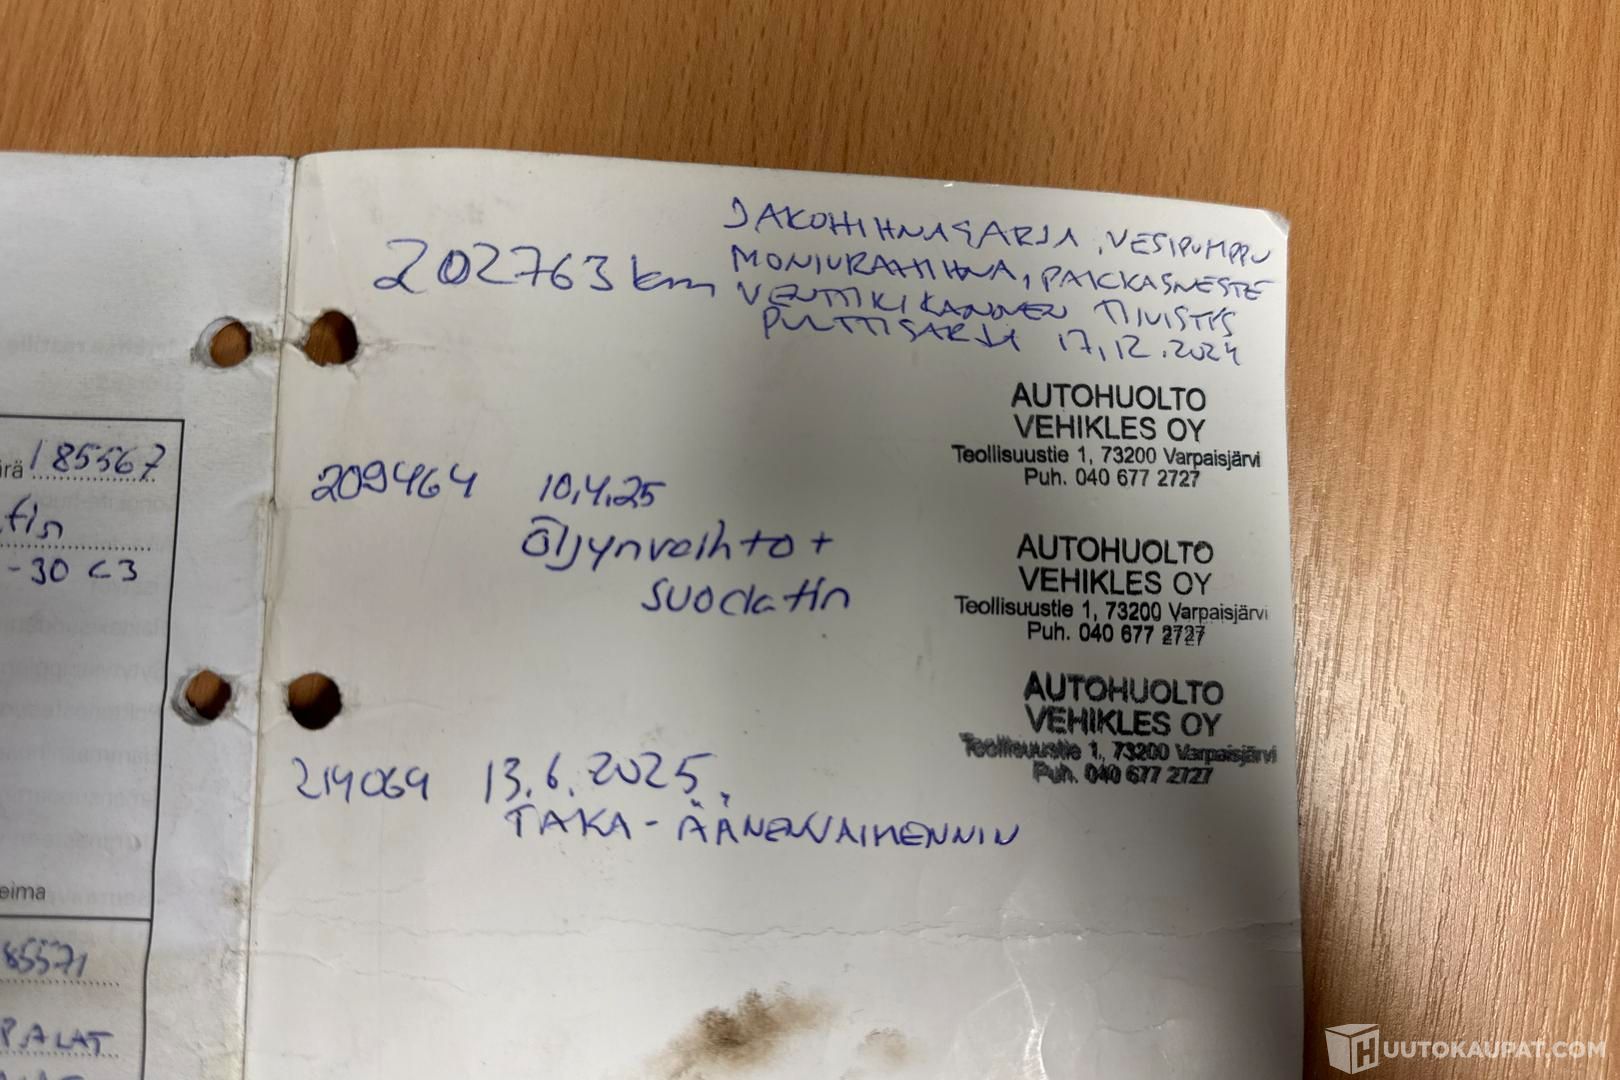 202763 km
JAKOHIHNASARJA, VESIPUMPPU
MONIURAHIHNA, PAKKASNESTE
VENTTIILIKANNEN TIIVISTYS
PULTTISARJA 17.12.2024
AUTOHUOLTO
VEHIKLES OY
Teollisuustie 1, 73200 Varpaisjärvi
Puh. 040 677 2727
209464 10.4.25
Öljynvaihto +
suodatin
AUTOHUOLTO
VEHIKLES OY
Teollisuustie 1, 73200 Varpaisjärvi
Puh. 040 677 2727
AUTOHUOLTO
VEHIKLES OY
Teollisuustie 1, 73200 Varpaisjärvi
Puh. 040 677 2727
219069 13.6.2025
TAKA-ÄÄNENVAIMENNIN
ärä 185567
-30 C3
eima
85571
PALAT
HUUTOKAUPAT.COM